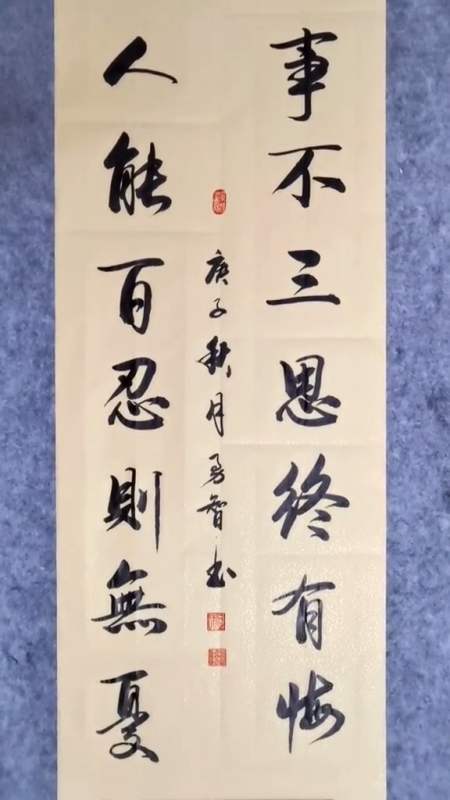 事不三思终有悔
人能百忍則無憂
庚子秋月勇智书